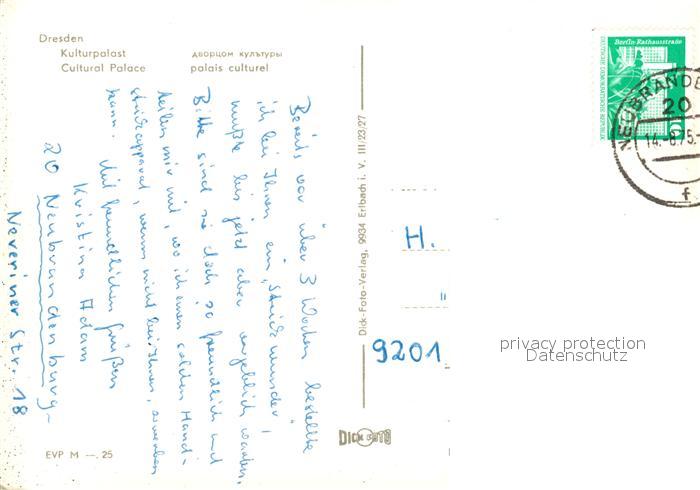 Dresden
Kulturpalast
Cultural Palace
дворцом культуры
palais culturel
Bereits vor über 3 Wochen bestellte
ich bei Ihnen ein "Strickwunder",
mußte bis jetzt aber vergeblich warten.
Bitte sind sie doch so freundlich und
teilen mir mit, wo ich einen solchen Hand-
strickapparat, wenn nicht bei Ihnen, erwerben
kann. Mit freundlichen Grüßen
Kristina Adam
20 Neubrandenburg
Neveriner Str. 18
EVP M —.25
Dick-Foto-Verlag, 9934 Erlbach i. V. III/23/27
DICK FOTO
H.
9201
Berlin-Rathausstraße
DEUTSCHE DEMOKRATISCHE REPUBLIK
10
NEUBRANDE
20
14.-8.75.-
f
privacy protection
Datenschutz